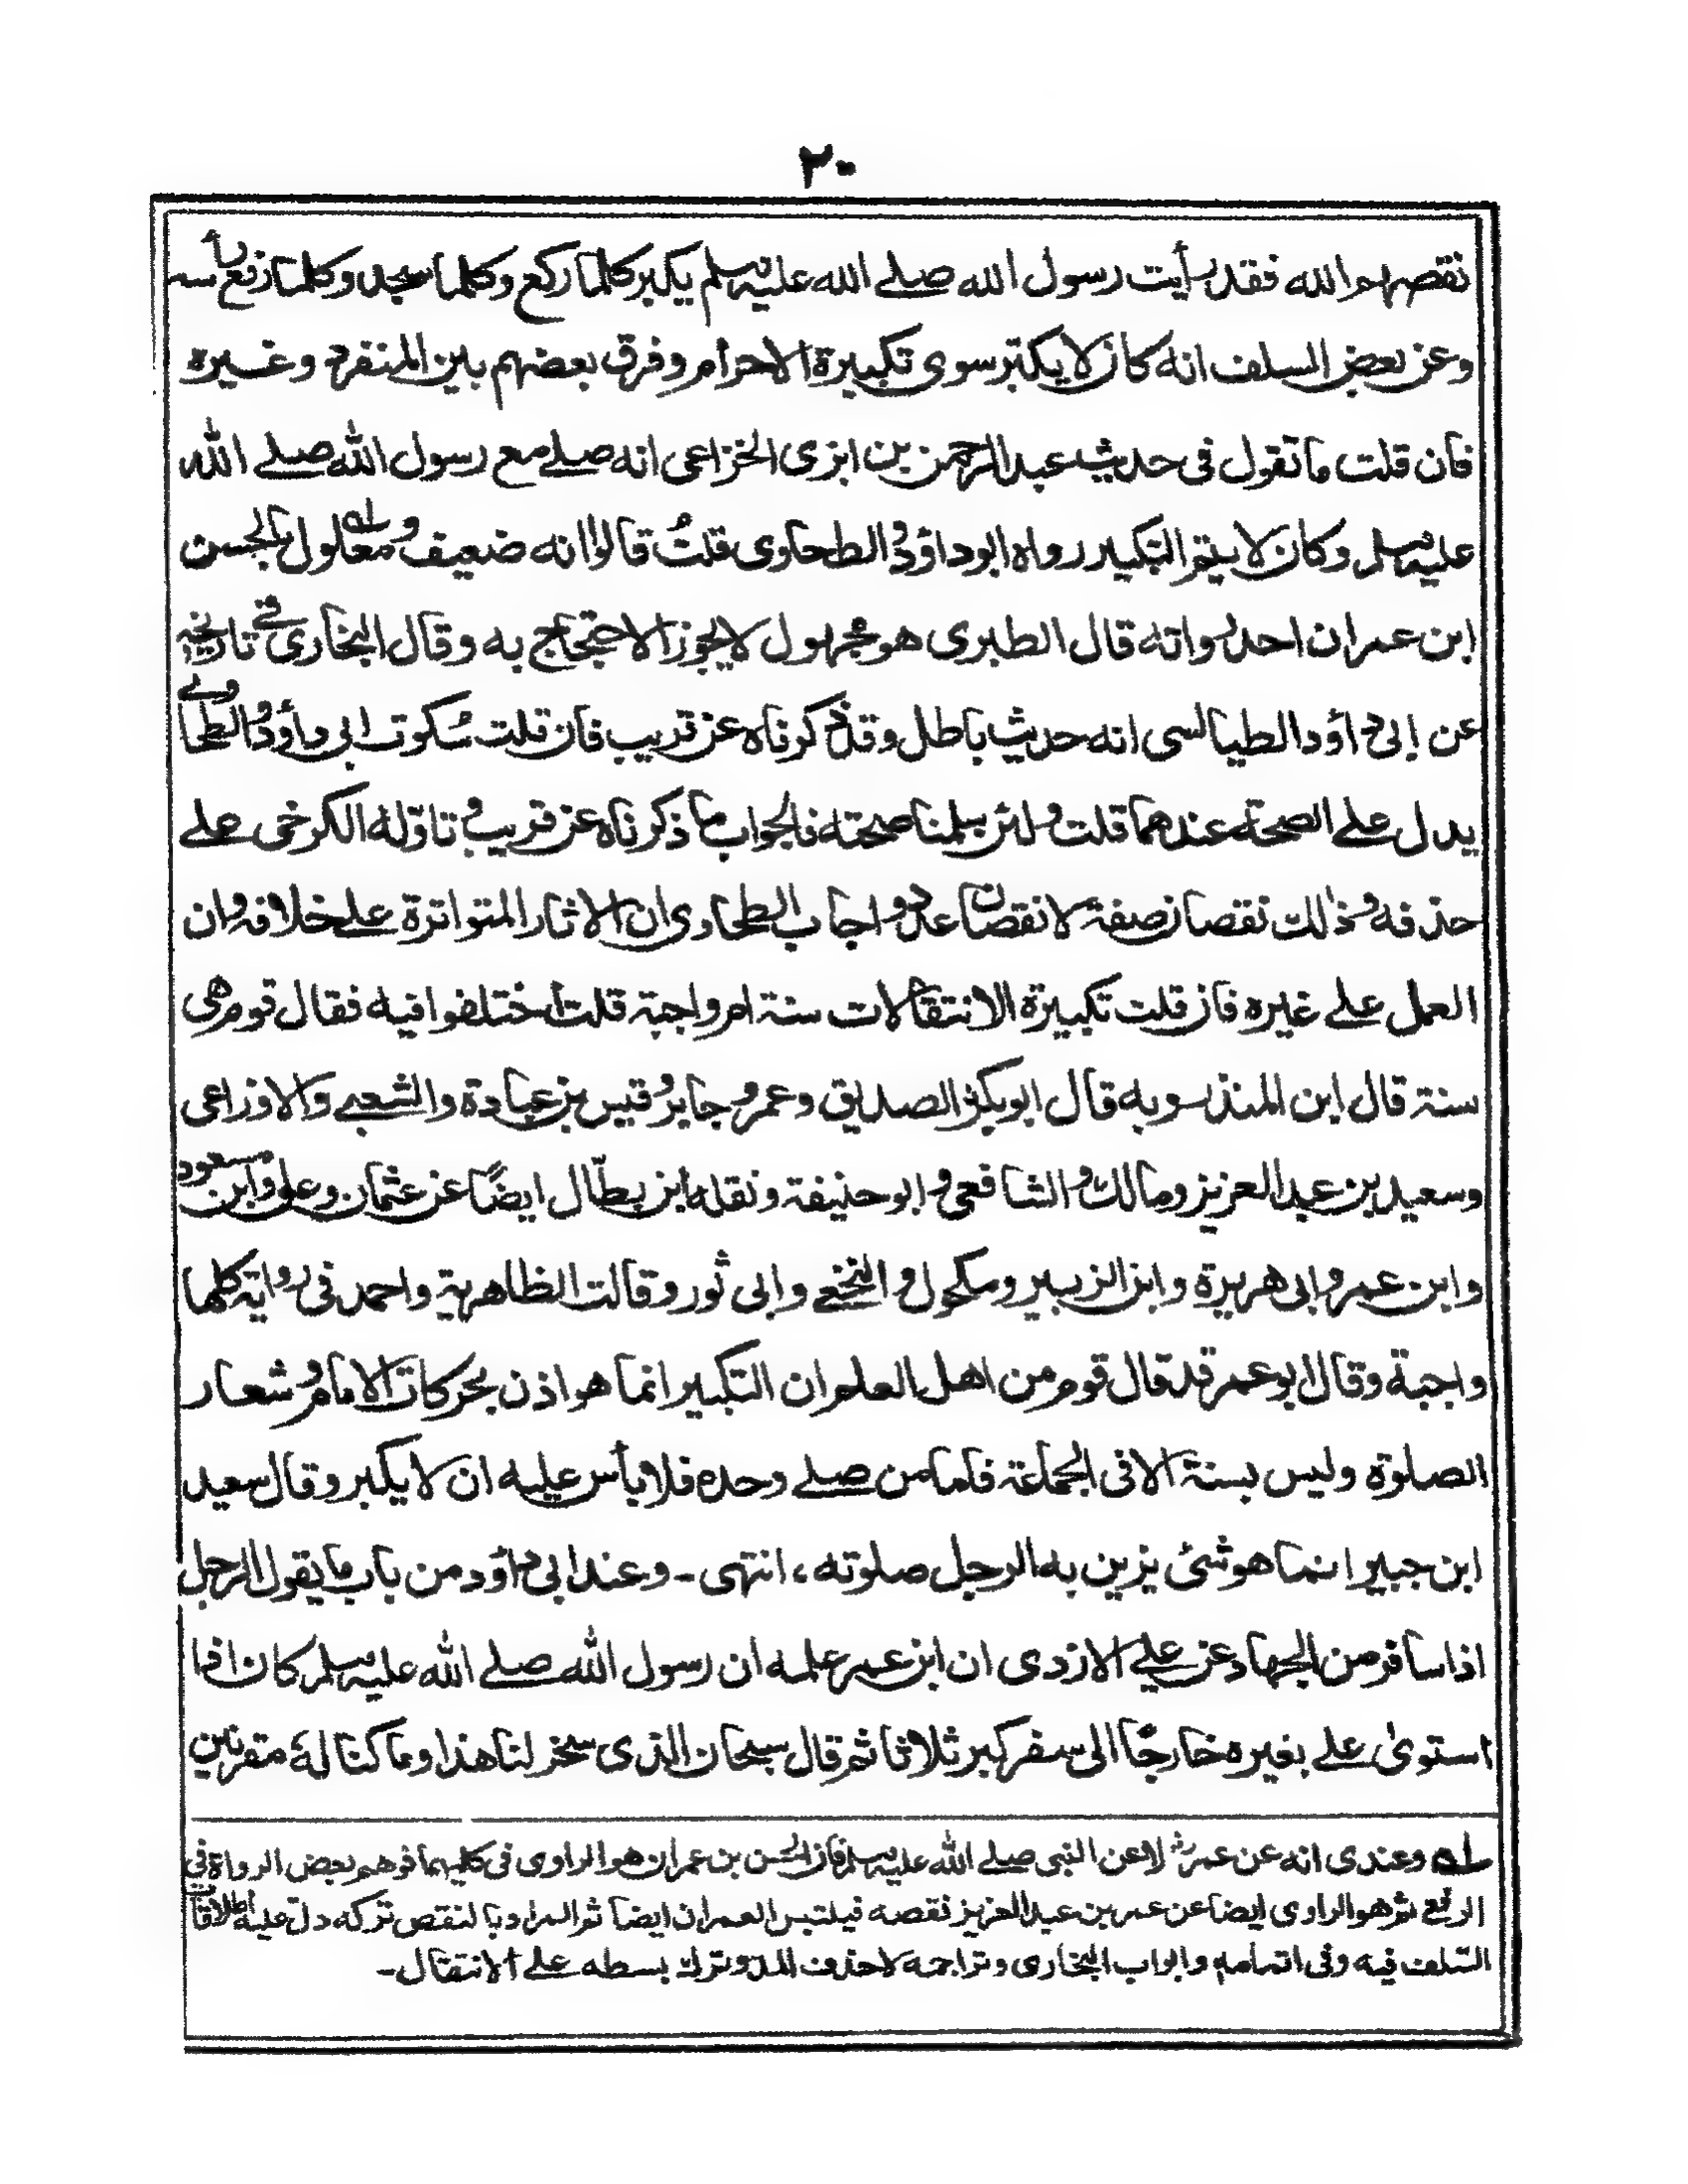 ٢٠
نقصهم والله فقد رأيت رسول الله صلے الله عليه وسلم يكبر كلما ركع وكلما سجد وكلما رفع رأسه
وعن بعض السلف انه كان لا يكبّر سوى تكبيرة الاحرام وفرق بعضهم بين المنفرد وغيره
فان قلت ما تقول فى حديث عبد الرحمن بن ابزى الخزاعى انه صلے مع رسول الله صلے الله
عليه وسلم وكان لا يتم التكبير رواه ابو داؤد والطحاوى قلتُ قالوا انه ضعيف ومعلول بالحسن
ابن عمران احد رواته قال الطبرى هو مجهول لا يجوز الاحتجاج به وقال البخارى فے تاريخه
عن ابى داؤد الطيالسى انه حديث باطل وقد ذكرناه عن قريب فان قلت سكوت ابى داؤد والطحاوے
يدل علے الصحة عندهما قلت ولئن سلمنا صحته فالجواب ما ذكرناه عن قريب وتاوّله الكرخى علے
حذفه وذلك نقصان صفة لا نقصان عدد واجاب الطحاوى ان الاثار المتواترة علے خلافه وان
العمل علے غيره فان قلت تكبيرة الانتقالات سنة ام واجبة قلت اختلفوا فيه فقال قوم هى
سنة قال ابن المنذر وبه قال ابوبكر الصديق وعمر وجابر وقيس بن عبادة والشعبے والاوزاعى
وسعيد بن عبد العزيز ومالك والشافعى وابو حنيفة ونقله ابن بطّال ايضًا عن عثمان وعلى وابن مسعود
وابن عمر وابى هريرة وابن الزبير ومكحول والنخعے وابى ثور وقالت الظاهرية واحمد فى رواية كلها
واجبة وقال ابو عمر قد قال قوم من اهل العلم ان التكبير انما هو اذن بحركات الامام وشعار
الصلوة وليس بسنة الا فى الجماعة فاما من صلے وحده فلا بأس عليه ان لا يكبر وقال سعيد
ابن جبير انما هو شئ يزين به الرجل صلوته، انتهى ـ وعند ابى داؤد من باب ما يقول الرجل
اذا سافر من الجهاد عن علے الازدى ان ابن عمر علمه ان رسول الله صلے الله عليه وسلم كان اذا
استوىٰ علے بعيره خارجًا الى سفر كبر ثلاثا ثم قال سبحان الذى سخر لنا هذا وما كنا له مقرنين
لـه وعندى انه عن عمر لا عن النبى صلے الله عليه وسلم فان الحسن بن عمران هو الراوى فى كليهما فوهم بعض الرواة فى
الرفع ثم هو الراوى ايضا عن عمر بن عبد العزيز نقصه فيلتبس العمران ايضا ثم المراد بالنقص تركه دل عليه اطلاقات
السّلف فيه وفى اتمامه وابواب البخارى وتراجمه لا حذف المد وترك بسطه علے الانتقال ـ